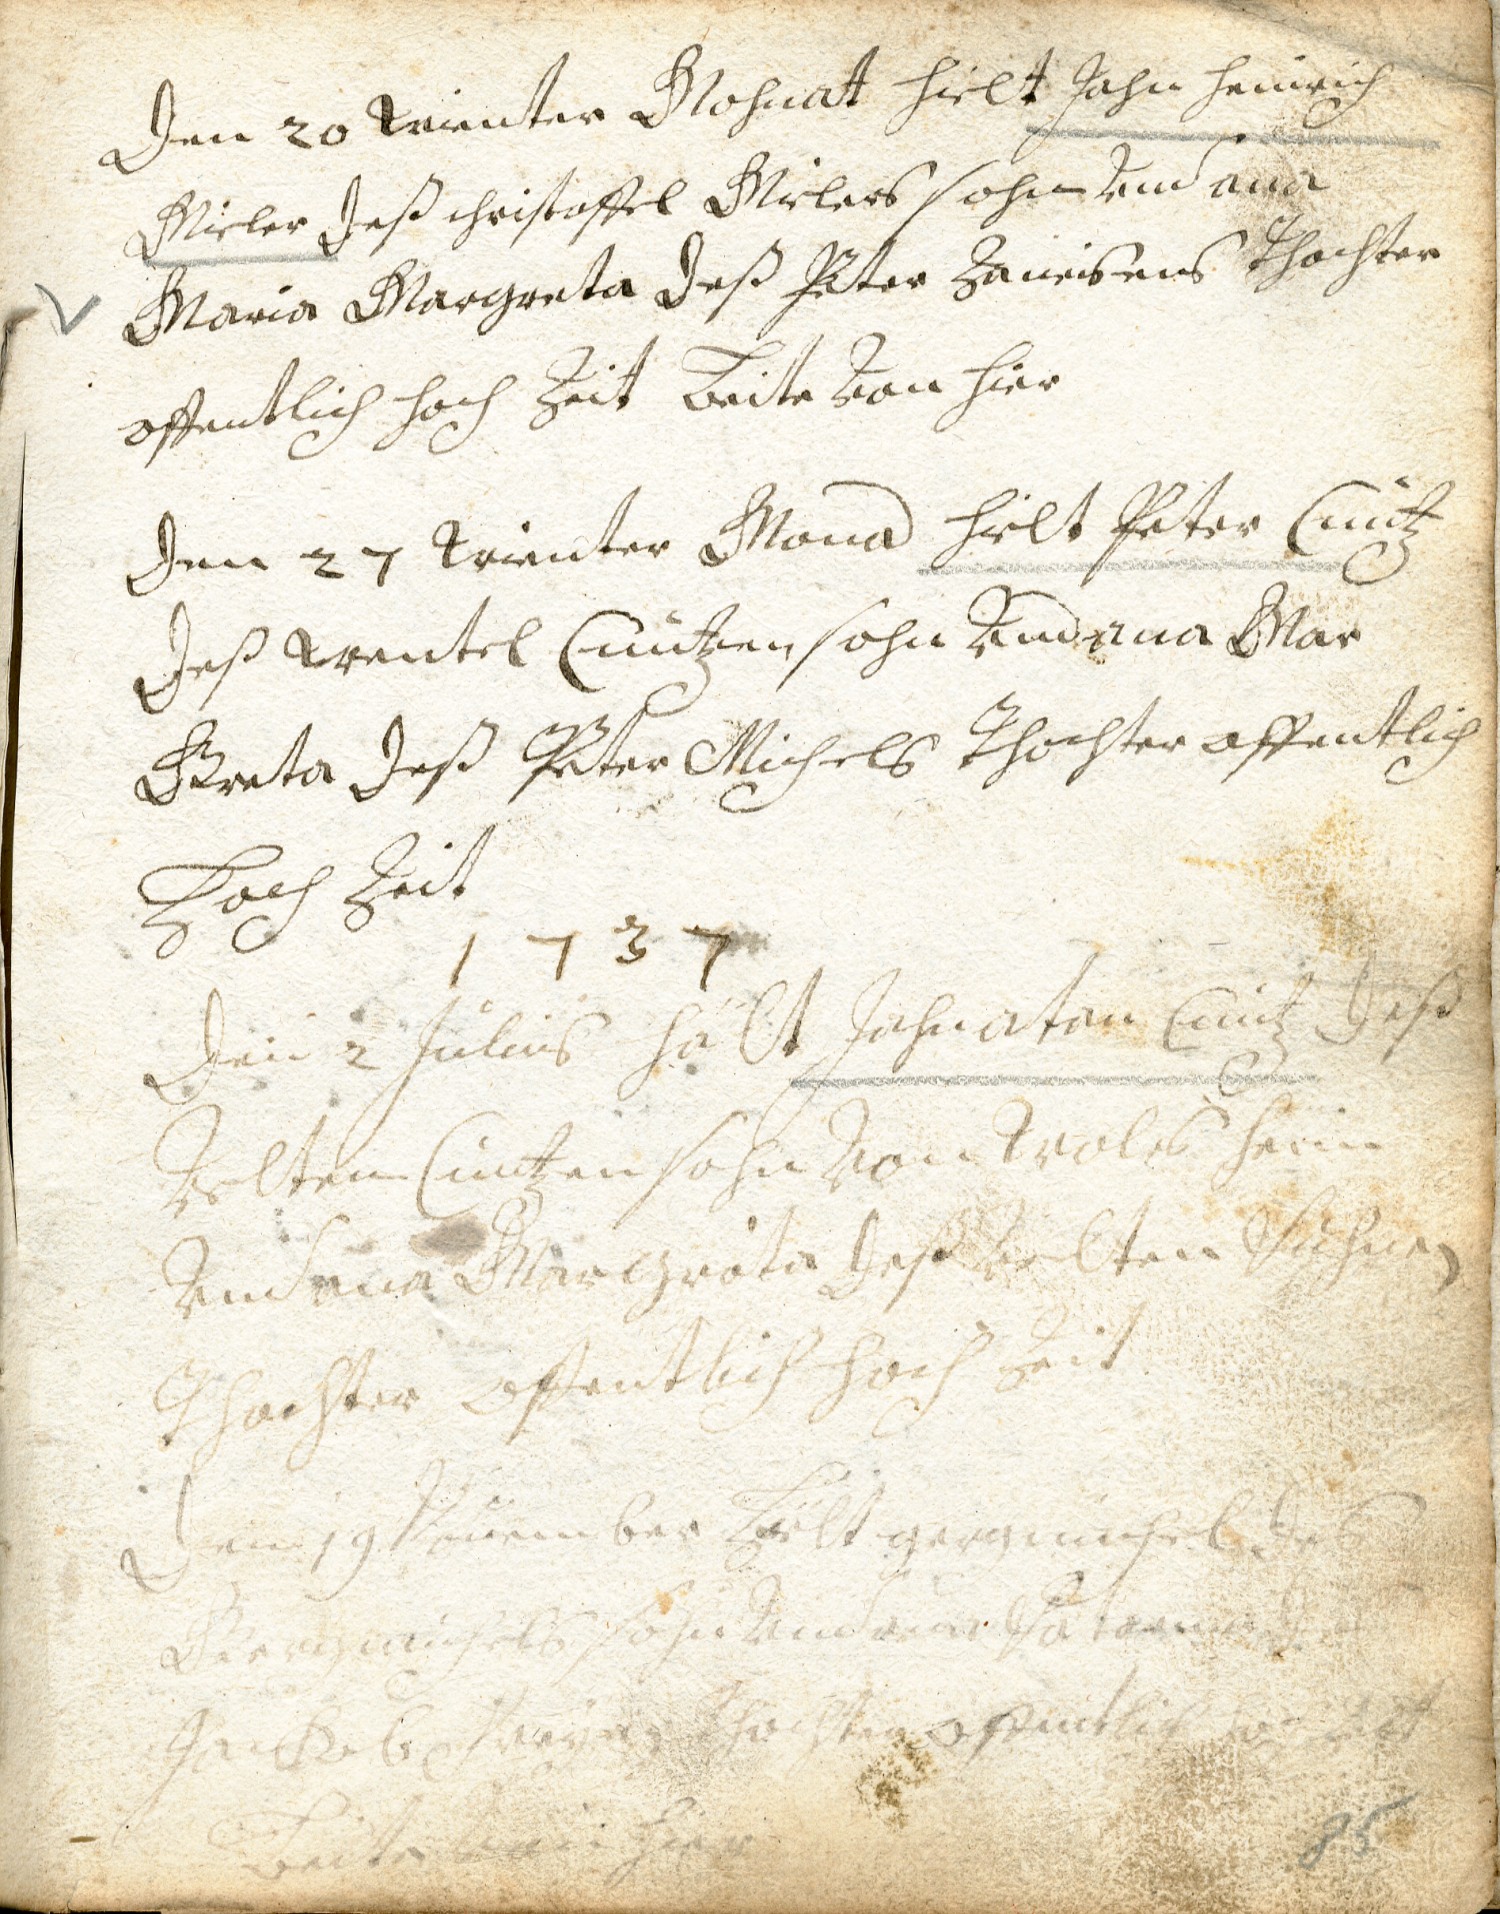 Den 20 Winter Mohnat hielt Jahn Heinrich
Mieler deß christoffel Mielers sohn und ana
Maria Margreta deß Peter Zaneisens Thochter
offentlich hoch Zeit Beite von hier
Den 27 Winter Monad hielt Peter Cuntz
deß Wentel Cuntzen sohn und ana Mar
Greta deß Peter Michels Thochter offentlich
Hoch Zeit
1737
Den 2 Julius hält Johnatan Cuntz deß
Velten Cuntzen sohn von Wolesheim
und ana Margreta deß Velten
Thochter offentlich hoch Zeit
Den 19 November Hält
sohn und ana
Jackob Thochter offentlich
Beite von hier
85